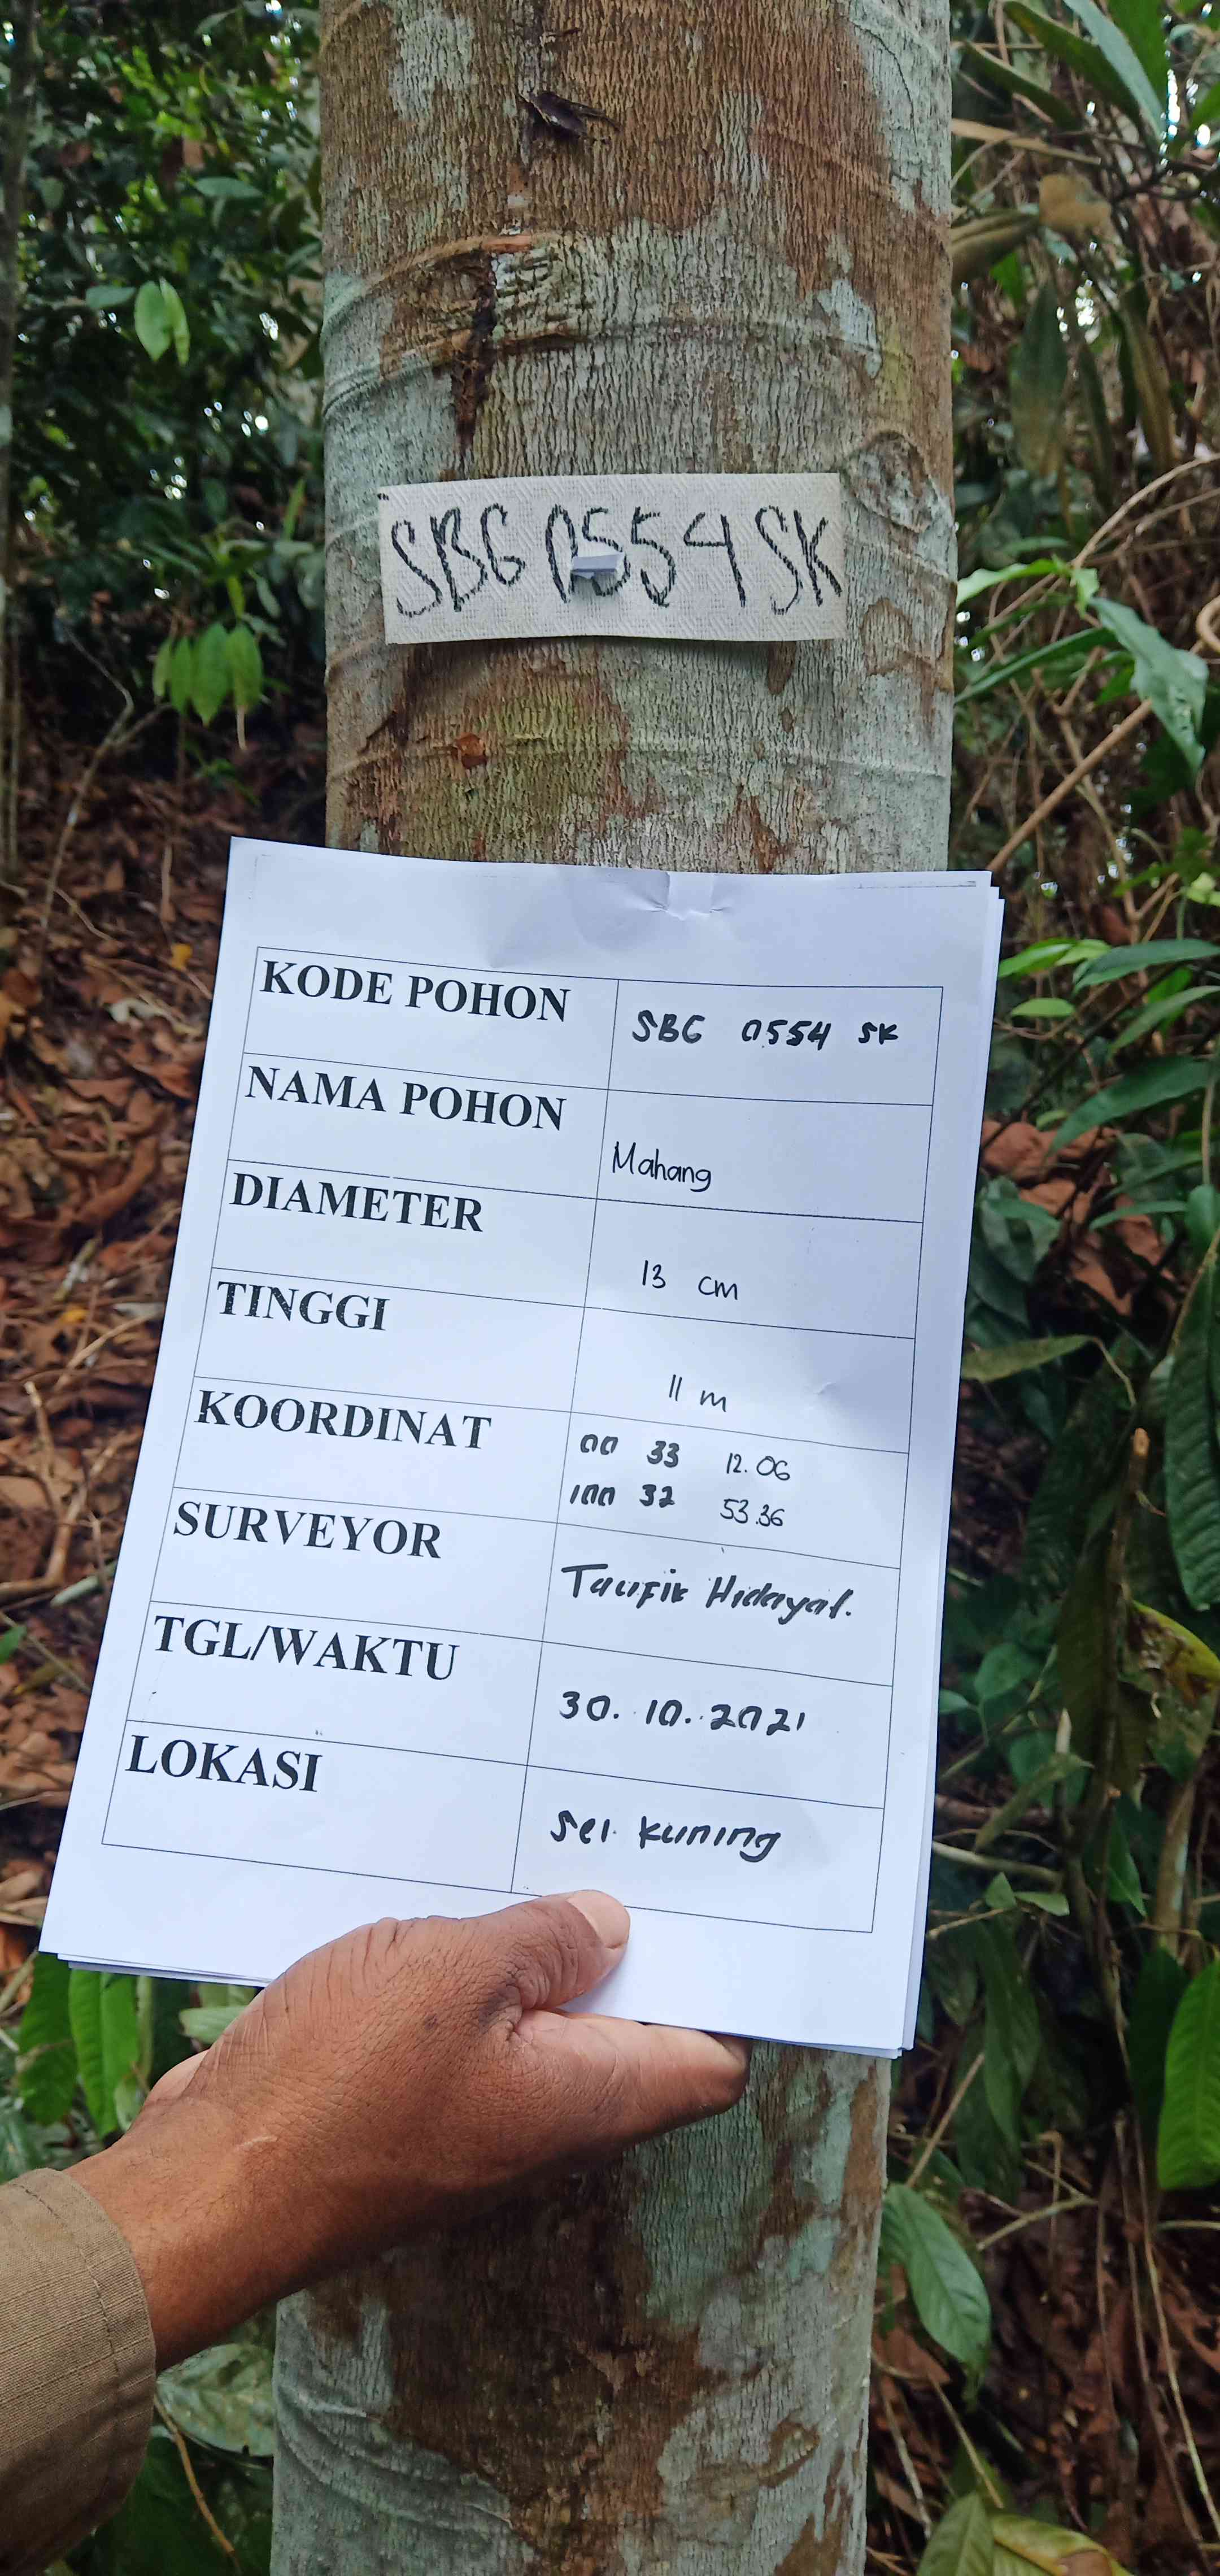 SBG 0554 SK
KODE POHON SBG 0554 SK
NAMA POHON Mahang
DIAMETER 13 cm
TINGGI 11 m
KOORDINAT 00 33 12.06
100 32 53.36
SURVEYOR Taufik Hidayat.
TGL/WAKTU 30.10.2021
LOKASI Sei. Kuning